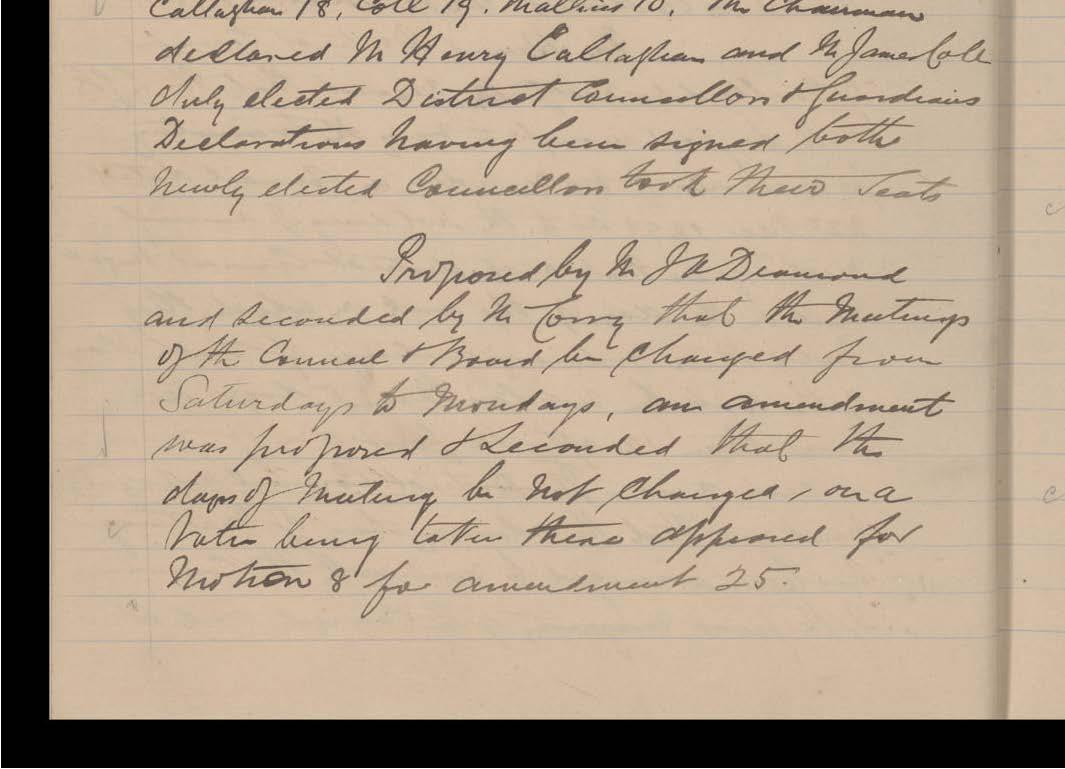 Callaghan 18, Coll 19. Mathias 10. The Chairman
declared Mr Henry Callaghan and Mr James Coll
duly elected District Councillors & Guardians
Declarations having been signed both
newly elected Councillors took their Seats
Proposed by Mr J A Diamond
and seconded by Mr Corry that the Meetings
of the Council & Board be changed from
Saturdays to Mondays, an amendment
was proposed & seconded that the
days of Meeting be not changed, on a
Vote being taken there appeared for
Motion 8 for amendment 25.